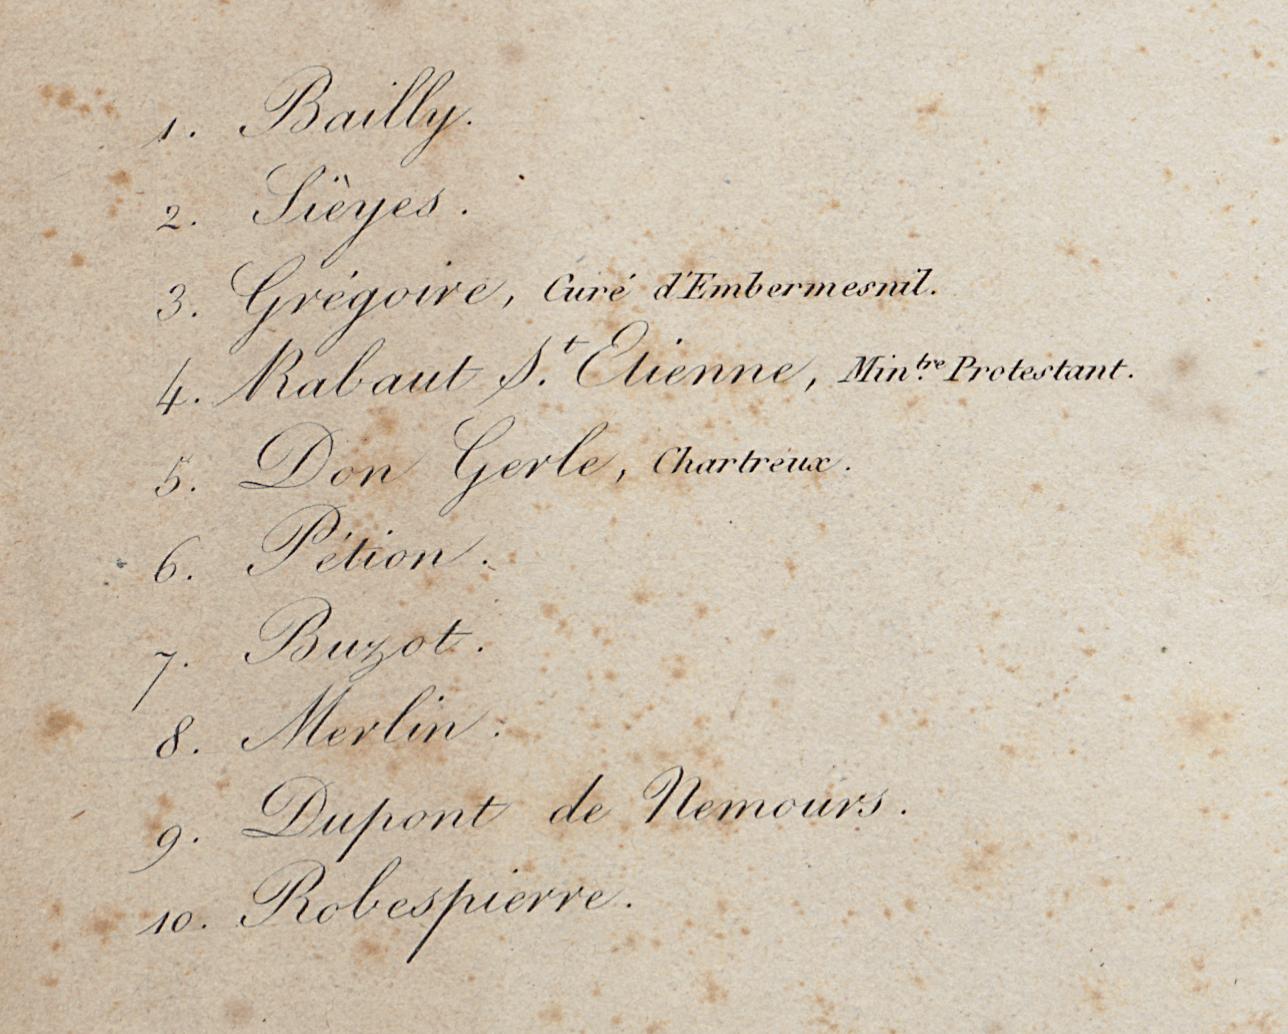 1. Bailly.
2. Sièyes.
3. Grégoire, Curé d'Embermesnil.
4. Rabaut S.t Etienne, Min.tre Protestant.
5. Don Gerle, Chartreux.
6. Pétion.
7. Buzot.
8. Merlin.
9. Dupont de Nemours.
10. Robespierre.